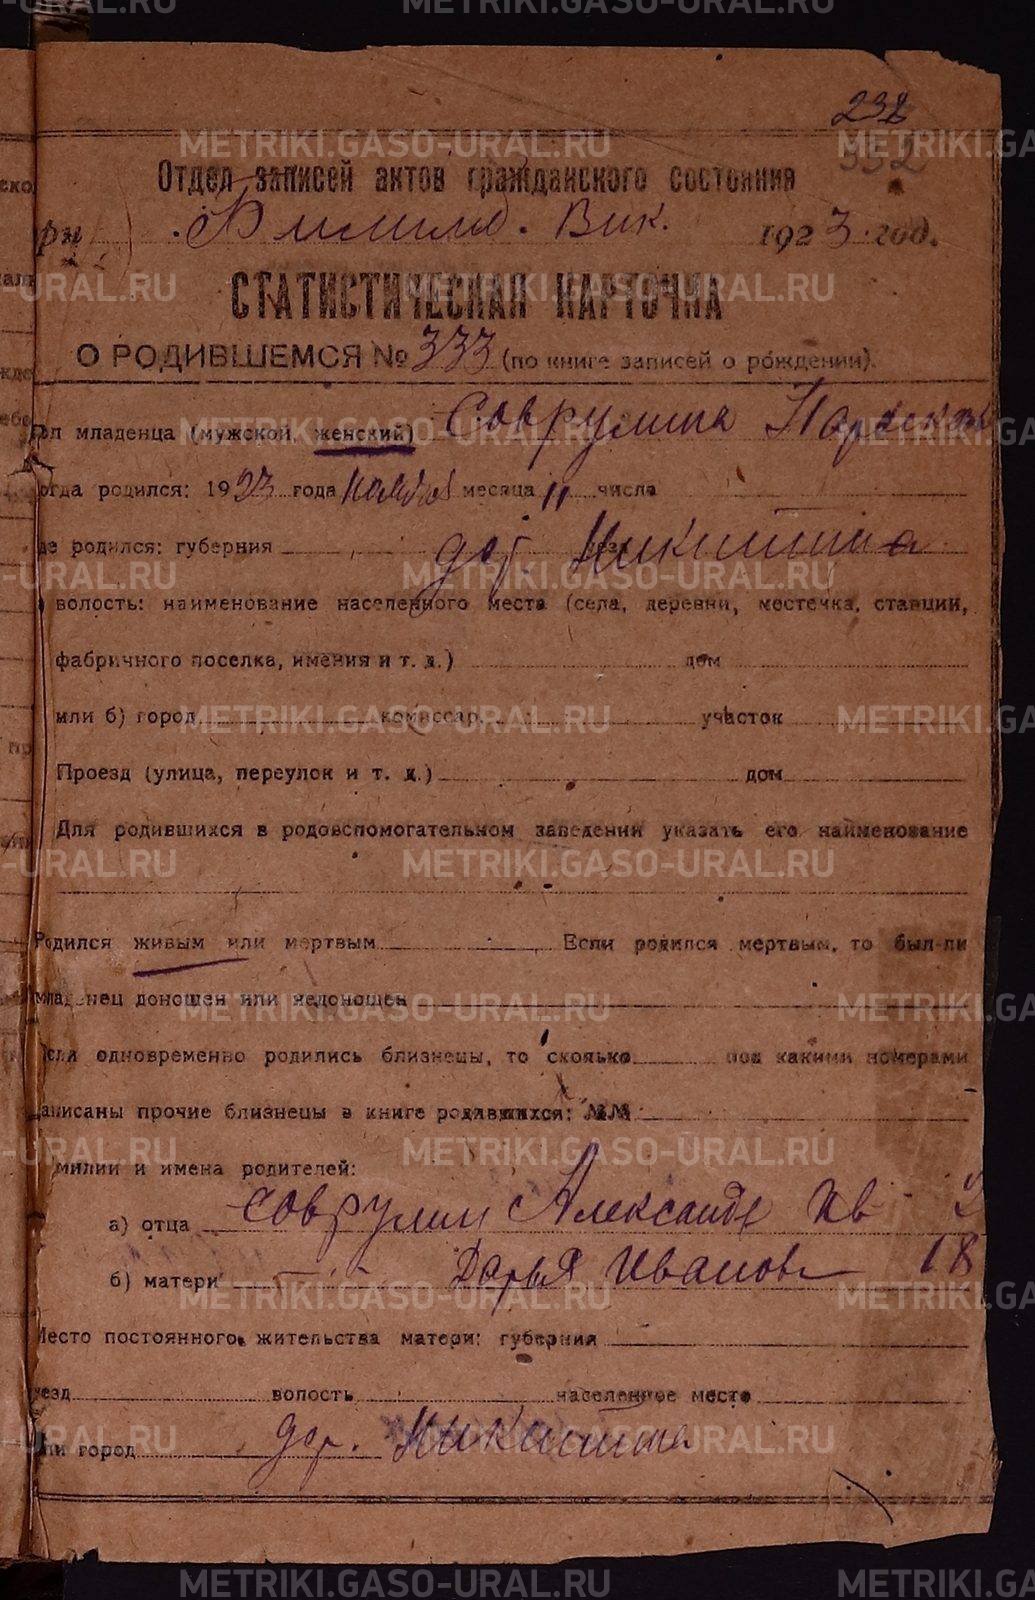 238
332
Отдел записей актов гражданского состояния
при Вик. 1923 год.
СТАТИСТИЧЕСКАЯ КАРТОЧКА
О РОДИВШЕМСЯ № 333 (по книге записей о рождении).
Пол младенца (мужской, женский) Соврулина Параскев
огда родился: 1923 года Ноября месяца 11 числа
де родился: губерния дер. Никитина
волость: наименование населенного места (села, деревни, местечка, станции,
фабричного поселка, имения и т. д.) дом
или б) город комиссар. участок
Проезд (улица, переулок и т. д.) дом
Для родившихся в родовспомогательном заведении указать его наименование
Родился живым или мертвым Если родился мертвым, то был-ли
младенец доношен или недоношен
если одновременно родились близнецы, то сколько под какими номерами
записаны прочие близнецы в книге родившихся: №№
милии и имена родителей:
а) отца Соврулин Александр Ив 2
б) матери Дарья Иванов 18
Место постоянного жительства матери: губерния
уезд волость населенное место
или город дер. Никитина
METRIKI.GASO-URAL.RU